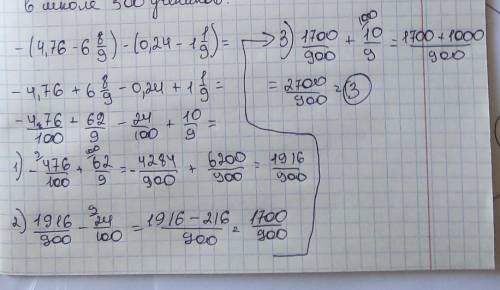 в школе 500 учеников.
-(4,76-6 8/9)-(0,24-1 1/9)=
-4,76+6 8/9-0,24+1 1/9=
-476/100+62/9-24/100+10/9=
1) -476/100+62/9=-4284/900+6200/900=1916/900
2) 1916/900-24/100=1916-216/900=1700/900
3) 1700/900+10/9=1700+1000/900
=2700/900=3